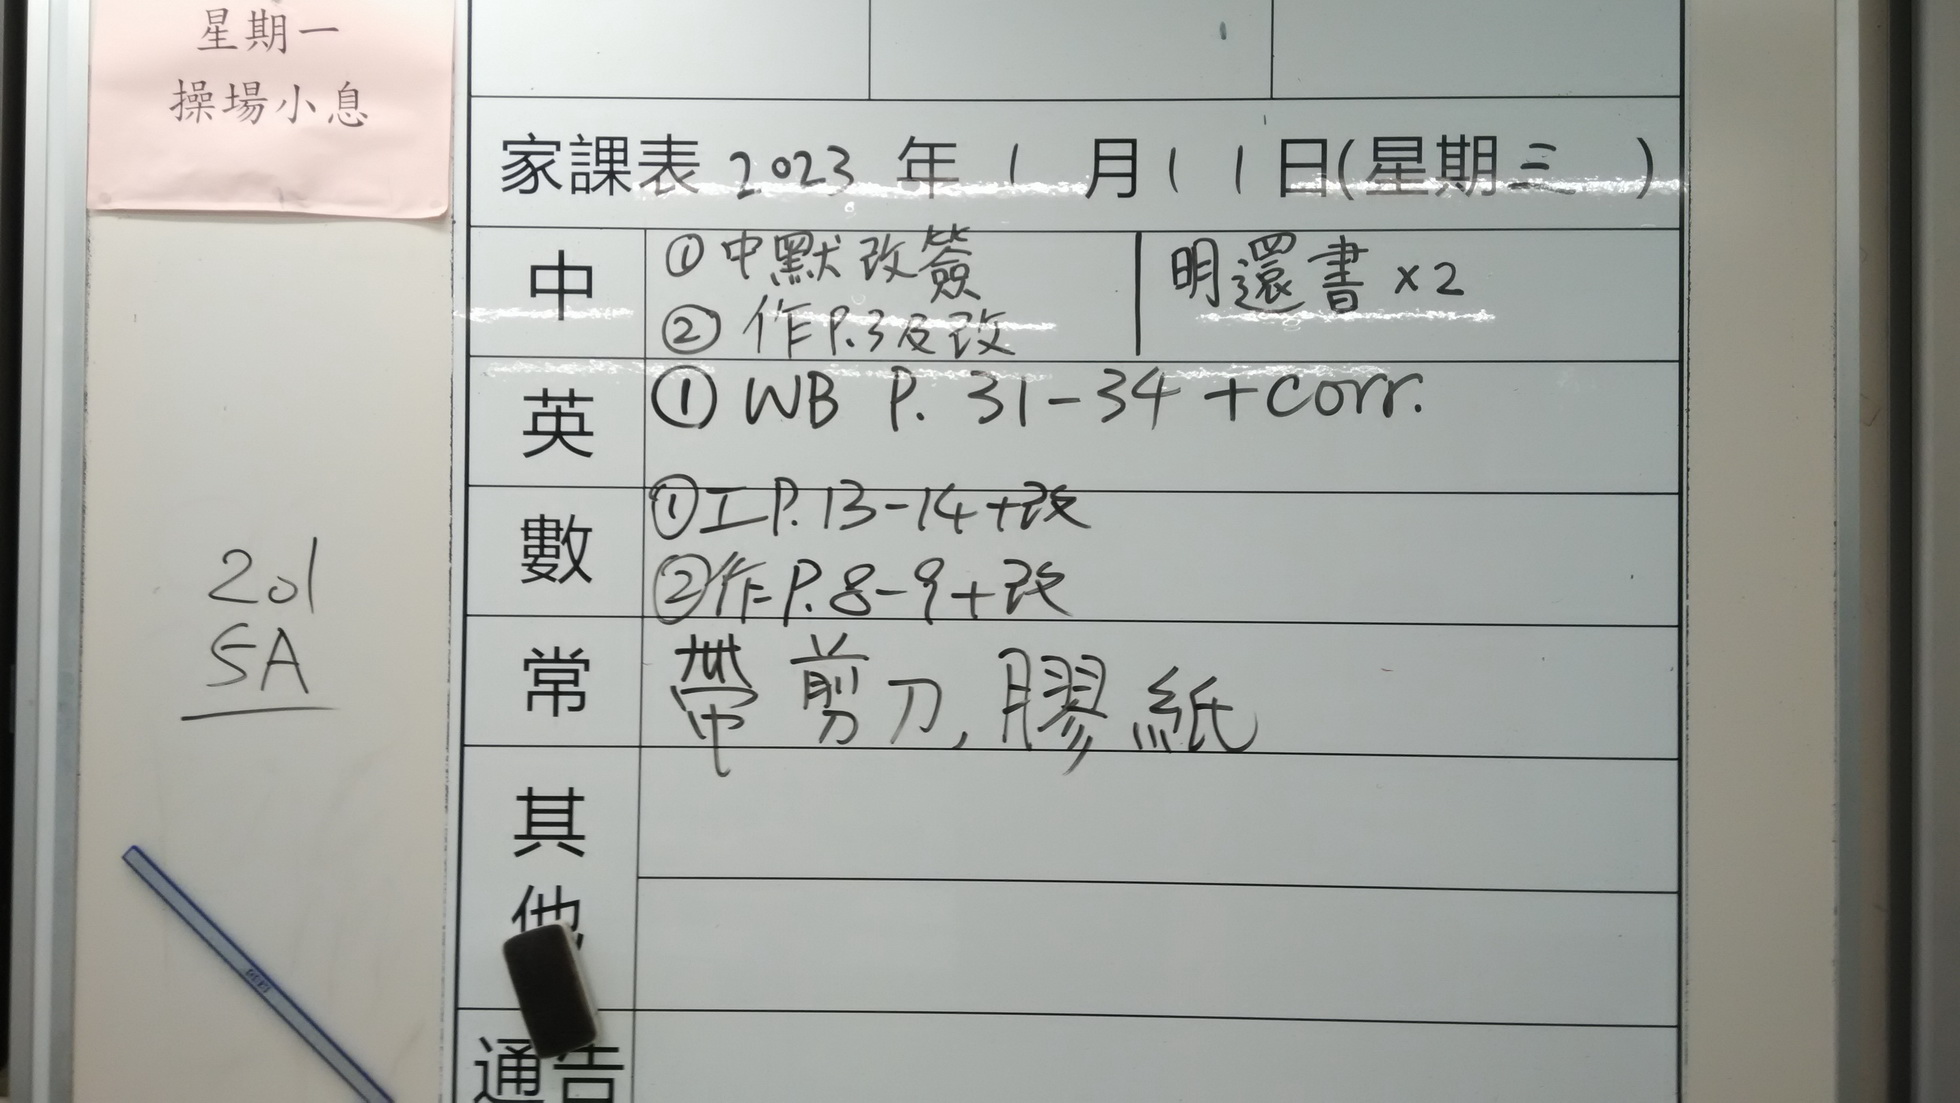 星期一
操場小息
家課表 2023 年 1 月 11 日(星期三 )
中
① 中默改簽
② 作P.3及改
明還書 x2
英
① WB P. 31-34 + corr.
數
① 工P.13-14+改
② 作P.8-9+改
常
帶剪刀, 膠紙
其他
通告
201
5A